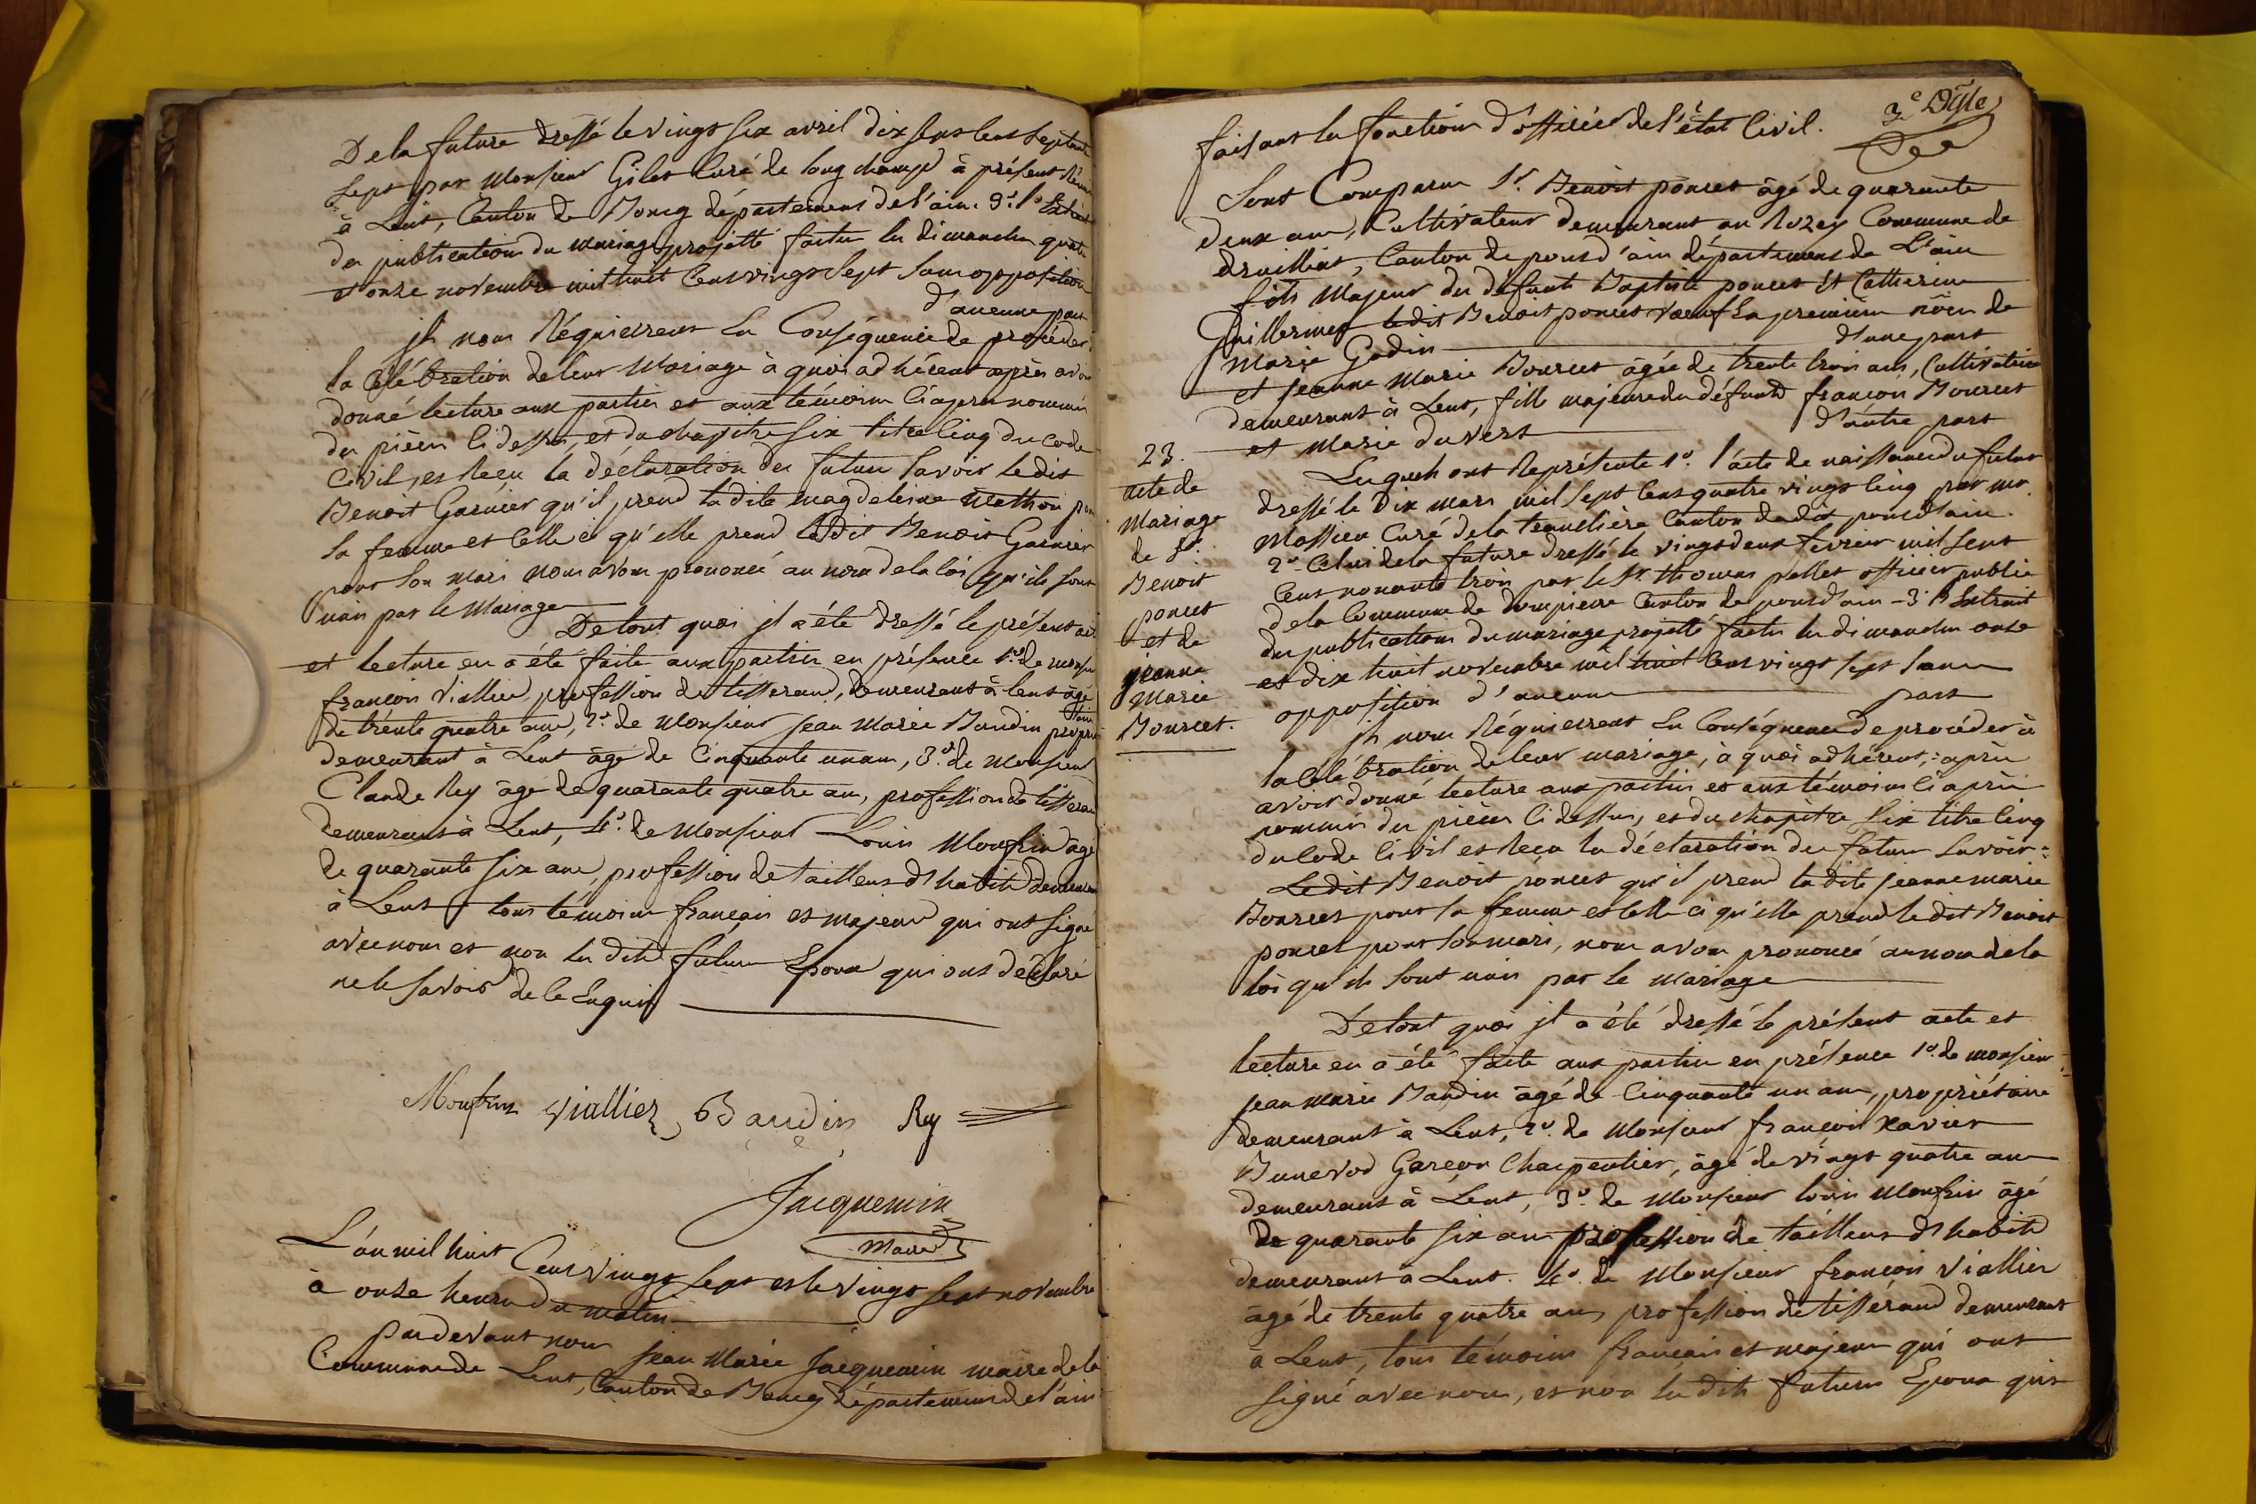 De la future dressé le vingt six avril dix sept cent septante
sept par Monsieur Gilet Curé de long champ à présent Réuni
à Lent, Canton de Bourg département de l'ain. 3.° l'Extrait
des publications du mariage projetté faites les dimanches quatre
et onze novembre mil huit cent vingt sept sans opposition
d'aucune part
jls nous Réquierrent En Conséquence de procéder à
la Célébration de leur Mariage à quoi adhérent après avoir
donné lecture aux parties et aux témoins Ciaprès nommés
des pièces Cidessus, et du chapitre six titre Cinq du Code
Civil, et Reçu la déclaration des futurs Savoir ledit
Benoit Garnier qu'il prend la dite magdeleine Mathon pour
sa femme et Celle ci qu'elle prend ledit Benoit Garnier
pour son mari nous avons prononcé au nom de la loi qu'ils sont
unis par le Mariage
De tout quoi jl a été dressé le présent acte
et lecture en a été faite aux parties en présence 1.° de monsieur
françois Viallier, profession de tisserand, demeurant à lent agé
de trente quatre ans, 2.° de Monsieur jean Marie Baudin propriétaire
demeurant à Lent âgé de Cinquante un ans, 3.° de Monsieur
Claude Rey âgé de quarante quatre ans, profession de tisserand
demeurant à Lent, 4.° de Monsieur Louis Monfrin âgé
de quarante six ans, profession de tailleur d'habits demeurant
à Lent tous témoins français et majeurs qui ont signé
avec nous et non les dits futurs Epoux qui ont déclaré
ne le savoir de ce Enquis
Monfrin Viallier Baudin Rey
Jacquemin
Maire
L'an mil huit Cent vingt sept et le vingt sept novembre
à onze heures du matin
pardevant nous jean Marie Jacquemin maire de la
Commune de Lent, Canton de Bourg département de l'ain
3.e
faisant la fonction d'officier de l'état Civil.
Sont Comparus S.r Benoit poncet âgé de quarante
deux ans, Cultivateur demeurant au Rozey Commune de
druillat, Canton de pont d'ain département de L'ain
fils Majeur des défunts Baptiste poncet Et Catherine
Guillermet ledit Benoit poncet veuf En première nôces de
Marie Godin d'une part
et jeanne Marie Bourcet âgée de trente trois ans, Cultivatrice
demeurant à Lent, fille majeure du défunts françois Bourcet
et Marie duvert d'autre part
23.
acte de
Mariage
de S.r
Benoit
poncet
et de
jeanne
Marie
Bourcet.
Lesquels ont Représenté 1.° l'acte de naissance du futur
dressé le Dix mars mil sept cent quatre vingt Cinq par mr
Massieu Curé de la tranclière Canton dudit pont d'ain.
2.° Celui de la future dressé le vingt deux fevrier mil sept
Cent nonante trois par le Sr. thomas pallet officier public
de la Commune de dompierre Canton de pont d'ain - 3.° l'Extrait
des publications du mariage projetté faites les dimanches onze
et dix huit novembre mil huit Cent vingt sept sans
opposition d'aucune part
jls nous Réquierrent En Conséquence de procéder à
la Célébration de leur mariage, à quoi adhérent, après
avoir donné lecture aux parties et aux témoins Ciaprès
nommés des pièces Cidessus, et du chapitre Six titre Cinq
du Code Civil et Reçu la déclaration des futurs Savoir:
Ledit Benoit poncet qu'il prend la dite jeanne marie
Bourcet pour sa femme et Celle ci qu'elle prend le dit Benoit
poncet pour son mari, nous avons prononcé au nom de la
loi qu'ils sont unis par le Mariage
De tout quoi jl a été dressé le présent acte et
lecture en a été faite aux parties en présence 1.° de monsieur
jean marie Baudin âgé de Cinquante un ans, propriétaire
demeurant à Lent, 2.° de Monsieur françois Xavier
Bunevod Garçon Charpentier, âgé de vingt quatre ans
demeurant à Lent, 3.° de Monsieur louis Monfrin âgé
de quarante six ans profession de tailleur d'habits
demeurant à Lent. 4.° de Monsieur françois Viallier
âgé de trente quatre ans profession de tisserand demeurant
à Lent, tous témoins français et majeurs qui ont
signé avec nous, et non les dits futurs Epoux qui